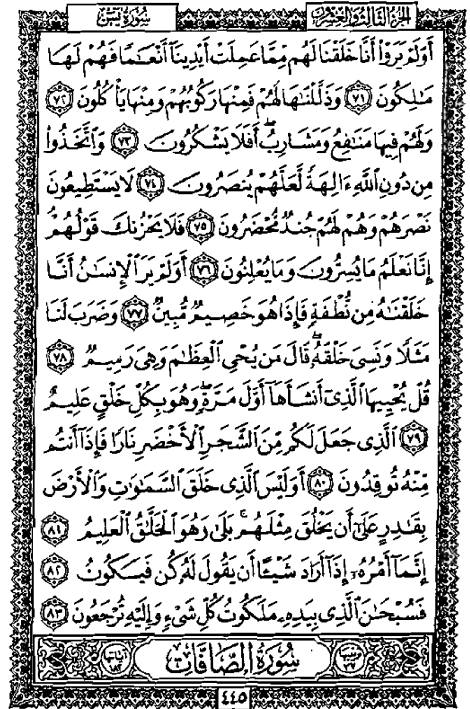 الجزء الثالث والعشرون
سورة يس
أَوَلَمْ يَرَوْا۟ أَنَّا خَلَقْنَا لَهُم مِّمَّا عَمِلَتْ أَيْدِينَآ أَنْعَٰمًا فَهُمْ لَهَا
مَٰلِكُونَ ٧١ وَذَلَّلْنَٰهَا لَهُمْ فَمِنْهَا رَكُوبُهُمْ وَمِنْهَا يَأْكُلُونَ ٧٢
وَلَهُمْ فِيهَا مَنَٰفِعُ وَمَشَارِبُ ۖ أَفَلَا يَشْكُرُونَ ٧٣ وَٱتَّخَذُوا۟
مِن دُونِ ٱللَّهِ ءَالِهَةً لَّعَلَّهُمْ يُنصَرُونَ ٧٤ لَا يَسْتَطِيعُونَ
نَصْرَهُمْ وَهُمْ لَهُمْ جُندٌ مُّحْضَرُونَ ٧٥ فَلَا يَحْزُنكَ قَوْلُهُمْ ۘ
إِنَّا نَعْلَمُ مَا يُسِرُّونَ وَمَا يُعْلِنُونَ ٧٦ أَوَلَمْ يَرَ ٱلْإِنسَٰنُ أَنَّا
خَلَقْنَٰهُ مِن نُّطْفَةٍ فَإِذَا هُوَ خَصِيمٌ مُّبِينٌ ٧٧ وَضَرَبَ لَنَا
مَثَلًا وَنَسِىَ خَلْقَهُۥ ۖ قَالَ مَن يُحْىِ ٱلْعِظَٰمَ وَهِىَ رَمِيمٌ ٧٨
قُلْ يُحْيِيهَا ٱلَّذِىٓ أَنشَأَهَآ أَوَّلَ مَرَّةٍ ۖ وَهُوَ بِكُلِّ خَلْقٍ عَلِيمٌ
٧٩ ٱلَّذِى جَعَلَ لَكُم مِّنَ ٱلشَّجَرِ ٱلْأَخْضَرِ نَارًا فَإِذَآ أَنتُم
مِّنْهُ تُوقِدُونَ ٨٠ أَوَلَيْسَ ٱلَّذِى خَلَقَ ٱلسَّمَٰوَٰتِ وَٱلْأَرْضَ
بِقَٰدِرٍ عَلَىٰٓ أَن يَخْلُقَ مِثْلَهُم ۚ بَلَىٰ وَهُوَ ٱلْخَلَّٰقُ ٱلْعَلِيمُ ٨١
إِنَّمَآ أَمْرُهُۥٓ إِذَآ أَرَادَ شَيْـًٔا أَن يَقُولَ لَهُۥ كُن فَيَكُونُ ٨٢
فَسُبْحَٰنَ ٱلَّذِى بِيَدِهِۦ مَلَكُوتُ كُلِّ شَىْءٍ وَإِلَيْهِ تُرْجَعُونَ ٨٣
سُورَةُ ٱلصَّافَّاتِ
٤٤٥